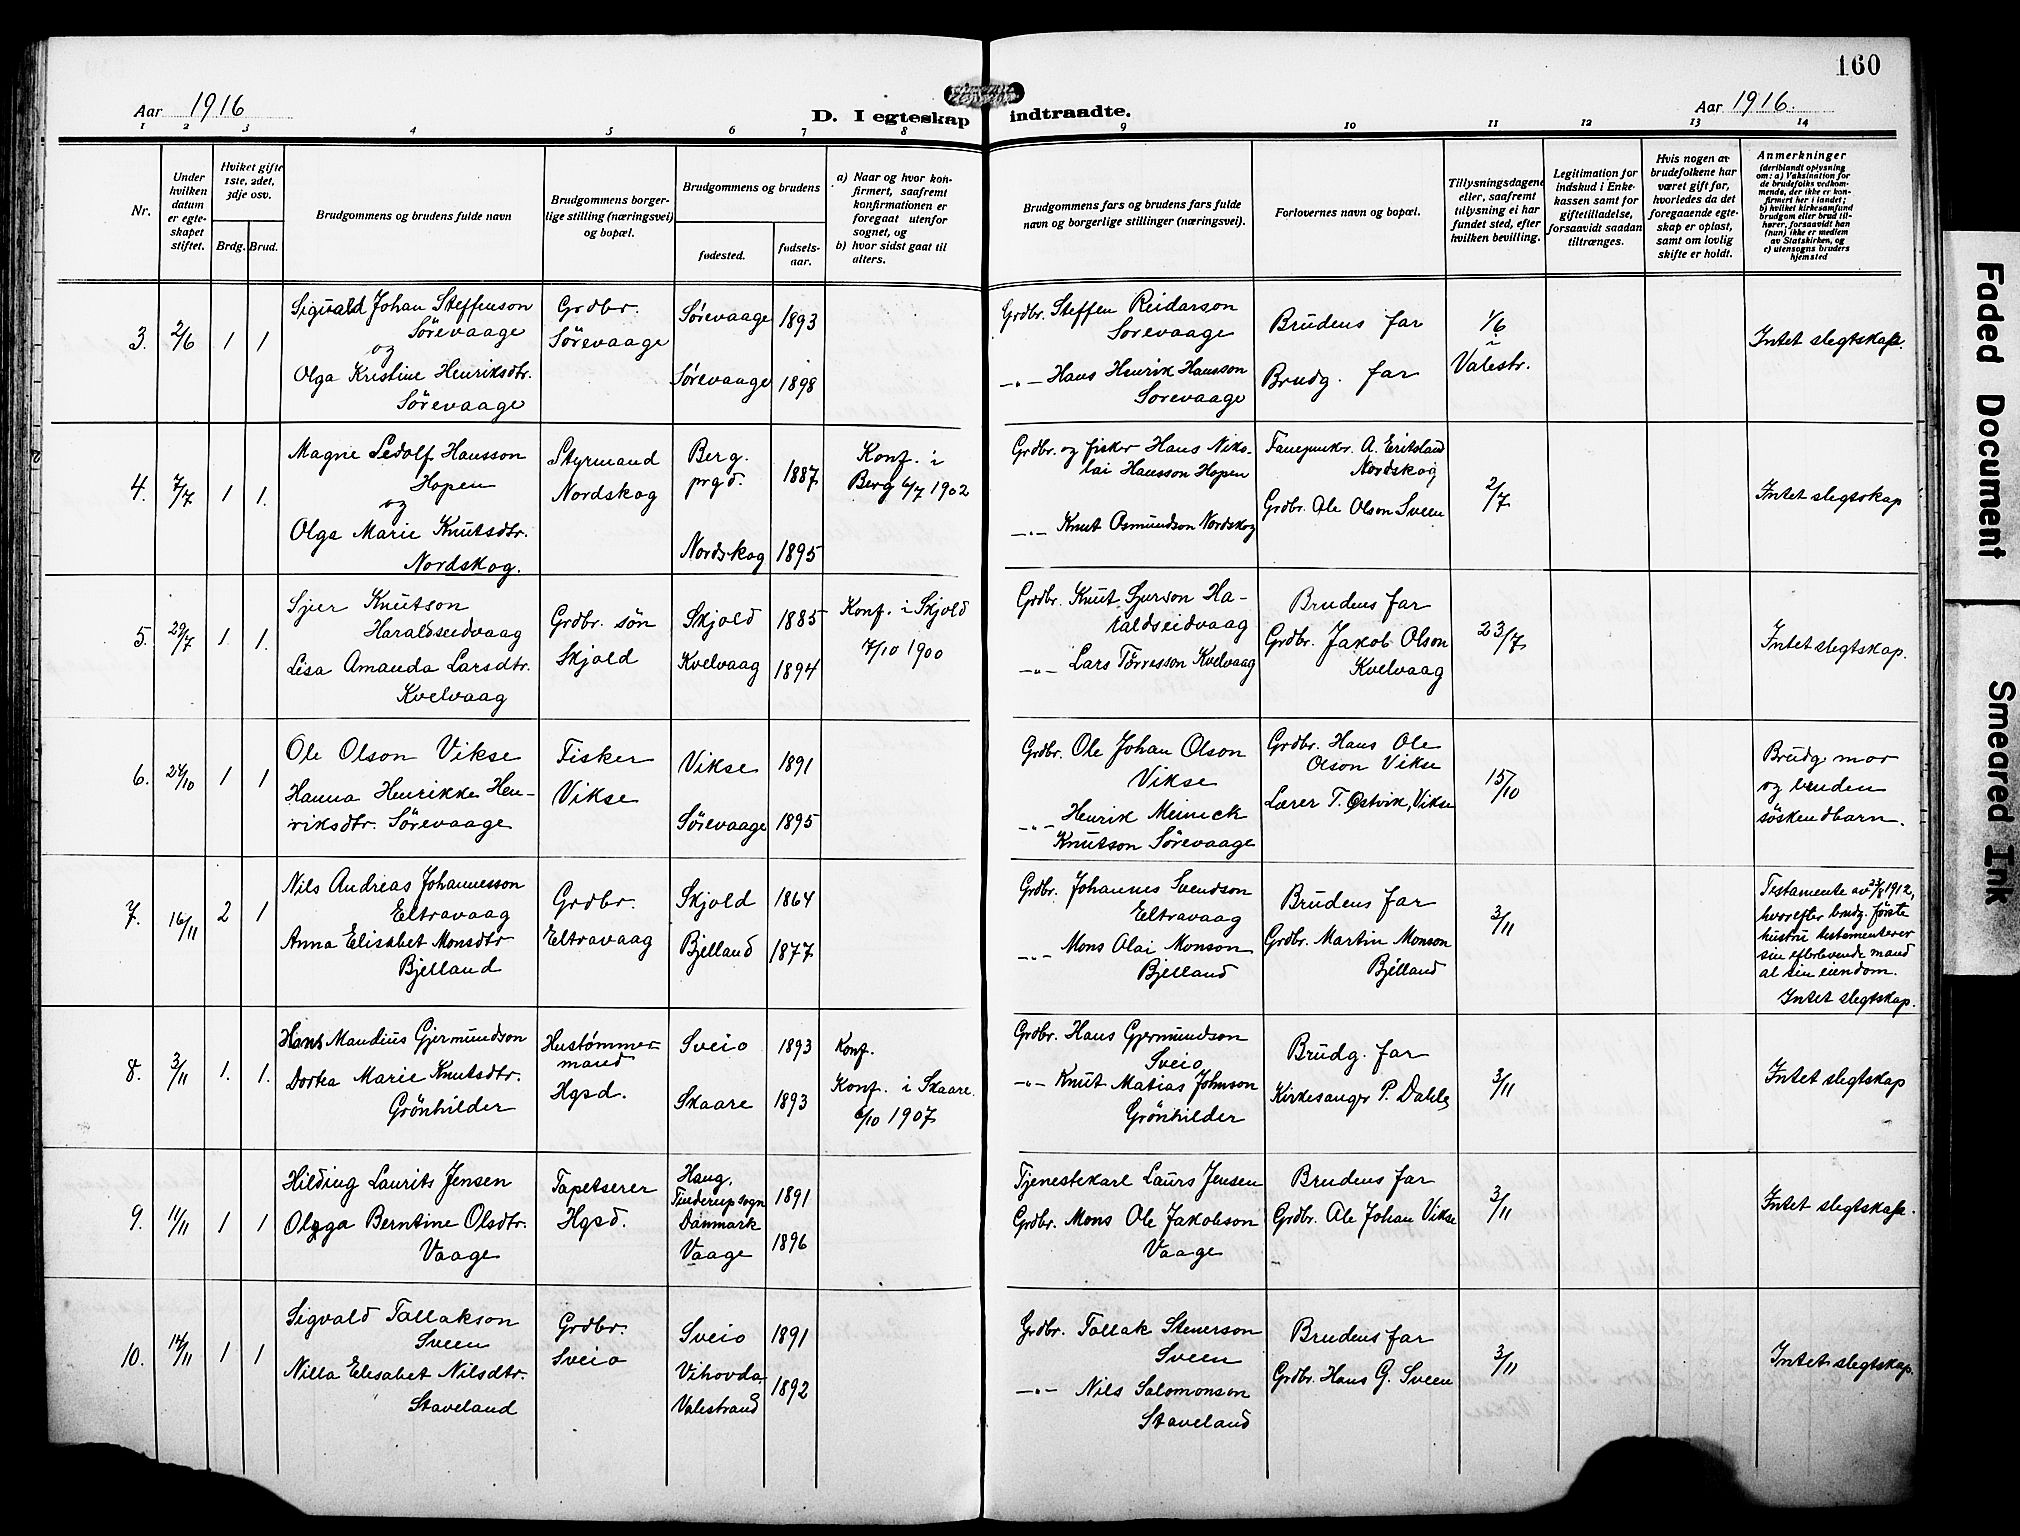 160
Aar 1916
D. I egteskap indtraadte.
Aar 1916.
1 2 3 4 5 6 7 8 9 10 11 12 13 14
Nr.
Under
hvilken
datum
er egte-
skapet
stiftet.
Hvilket gifte
1ste, 2det,
3dje osv.
Brdg. Brud.
Brudgommens og brudens fulde navn
Brudgommens borger-
lige stilling (næringsvei)
og bopæl.
Brudgommens og brudens
fødested.
fødsels-
aar.
a) Naar og hvor kon-
firmert, saafremt
konfirmationen er
foregaat utenfor
sognet, og
b) hvor sidst gaat til
alters.
Brudgommens fars og brudens fars fulde
navn og borgerlige stillinger (næringsvei).
Forlovernes navn og bopæl.
Tillysningsdagene
eller, saafremt
tillysning ei har
fundet sted, efter
hvilken bevilling.
Legitimation for
indskud i Enke-
kassen samt for
giftetilladelse,
forsaavidt saadan
tiltrænges.
Hvis nogen av
brudefolkene har
været gift før,
hvorledes da det
foregaaende egte-
skap er opløst,
samt om lovlig
skifte er holdt.
Anmerkninger
(deriblandt oplysning
om: a) Vaksination for
de brudefolks vedkom-
mende, der ikke er kon-
firmert her i landet;
b) hvilket kirkesamfund
brudgom eller brud til-
hører, forsaavidt han
(hun) ikke er medlem
av Statskirken, og
c) utensogns bruders
hjemsted
3. 2/6 1 1
Sigvald Johan Steffenson
Sørevaage
og
Olga Kristine Henriksdtr.
Sørevaage
Grdbr.
Sørevaage
Sørevaage 1893
Sørevaage 1898
Grdbr. Steffen Reidarson
Sørevaage
—"— Hans Henrik Hansson
Sørevaage
Brudens far
Brudg. far
1/6
i
Valestr.
Intet slegtskap.
4. 7/7 1 1.
Magne Ledolf Hansson
Hopen
og
Olga Marie Knutsdtr.
Nordskog.
Styrmand
Nordskog
Berg.
prgd. 1887
Nordskog 1895
Konf. i
Berg 6/7 1902
Grdbr. og fisker Hans Niko-
lai Hansson Hopen
—"— Knut Osmundson Nordskog
A. Eritsland
Nordskog
Grdbr. Ole Olson Sveen
2/7
Intet slegtskap
5. 29/7 1. 1.
Sjur Knutson
Haraldseidvaag
Lisa Amanda Larsdtr.
Kvelvaag
Grdbr. søn
Skjold
Skjold 1885
Kvelvaag 1894
Konf. i Skjold
7/10 1900
Grdbr. Knut Sjurson Ha-
raldseidvaag
—"— Lars Tørresson Kvelvaag
Brudens far
Grdbr. Jakob Olson
Kvelvaag
23/7
Intet slegtskap.
6. 24/10 1 1
Ole Olson Vikse
Hanna Henrikke Hen-
riksdtr. Sørevaage
Fisker
Vikse
Vikse 1891
Sørevaage 1895
Grdbr. Ole Johan Olson
Vikse
—"— Henrik Meinick
Knutson Sørevaage
Grdbr. Hans Ole
Olson Vikse
Lærer T. Østvik, Vikse
15/10
Brudg. mor
og bruden
søskendbarn.
7. 16/11 2 1
Nils Andreas Johannesson
Eltravaag
Anna Elisabet Monsdtr
Bjelland
Grdbr.
Eltravaag
Skjold 1864
Bjelland 1877
Grdbr. Johannes Svendson
Eltravaag
—"— Mons Olai Monson
Bjelland
Brudens far
Grdbr. Martin Monson
Bjelland
3/11
Testamente av 23/8 1912,
hvorefter brudg. første
hustru testamenterer
sin efterlevende mand
al sin eiendom.
Intet slegtskap.
8. 3/11 1. 1.
Hans Mandius Gjermundson
Dortea Marie Knutsdtr.
Grønhilder
Hustømmer-
mand
Hgsd.
Sveio 1893
Skaare 1893
Konf.
Konf. i Skaare
6/10 1907
Grdbr. Hans Gjermundson
Sveio
—"— Knut Matias Johnson
Grønhilder
Brudg. far
Kirkesanger P. Dahle
3/11
Intet slegtskap
9. 11/11 1 1
Hilding Laurits Jensen
Olga Berntine Olsdtr.
Vaage
Tapetserer
Hgsd.
Haug,
Tinderup sogn 1891
Danmark
Vaage 1896
Tjenestekarl Laurs Jensen
Grdbr. Mons Ole Jakobson
Vaage
Brudens far
Grdbr. Ole Johan Vikse
3/11
Intet slegtskap.
10. 14/11 1 1
Sigvald Tallakson
Sveen
Nilla Elisabet Nilsdtr.
Staveland
Grdbr.
Sveio
Sveio 1891
Vihovda
Valestrand 1892
Grdbr. Tallak Stenerson
Sveen
—"— Nils Salomonson
Staveland
Brudens far
Grdbr. Hans G. Sveen
3/11
Intet slegtskap.
Faded Document
Smeared Ink